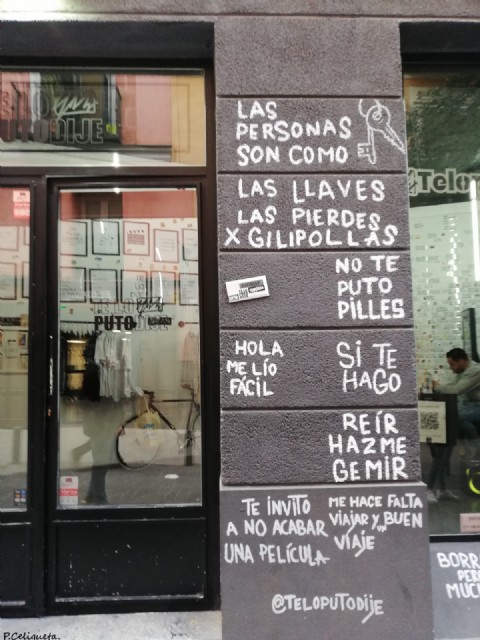 TE LO
PUTODIJE
LAS
PERSONAS
SON COMO
LAS LLAVES
LAS PIERDES
X GILIPOLLAS
NO TE
PUTO
PILLES
HOLA
ME LÍO
FÁCIL
SI TE
HAGO
REÍR
HAZME
GEMIR
TE INVITO
A NO ACABAR
UNA PELÍCULA
ME HACE FALTA
VIAJAR y UN BUEN
VIAJE
@TELOPUTODIJE
TE LO
PUTO DIJE
Telop
BORR
PER
MUCH
P.Celiqueta.